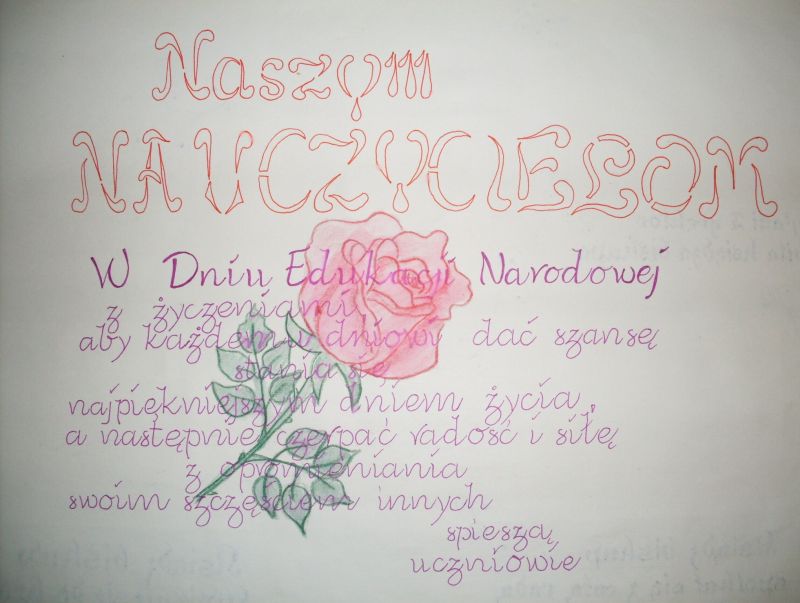 Naszym
NAUCZYCIELOM
W Dniu Edukacji Narodowej
z życzeniami
aby każdemu dniowi dać szansę
stania się
najpiękniejszym dniem życia,
a następnie czerpać radość i siłę
z opromieniania
swoim szczęściem innych
spieszą
uczniowie